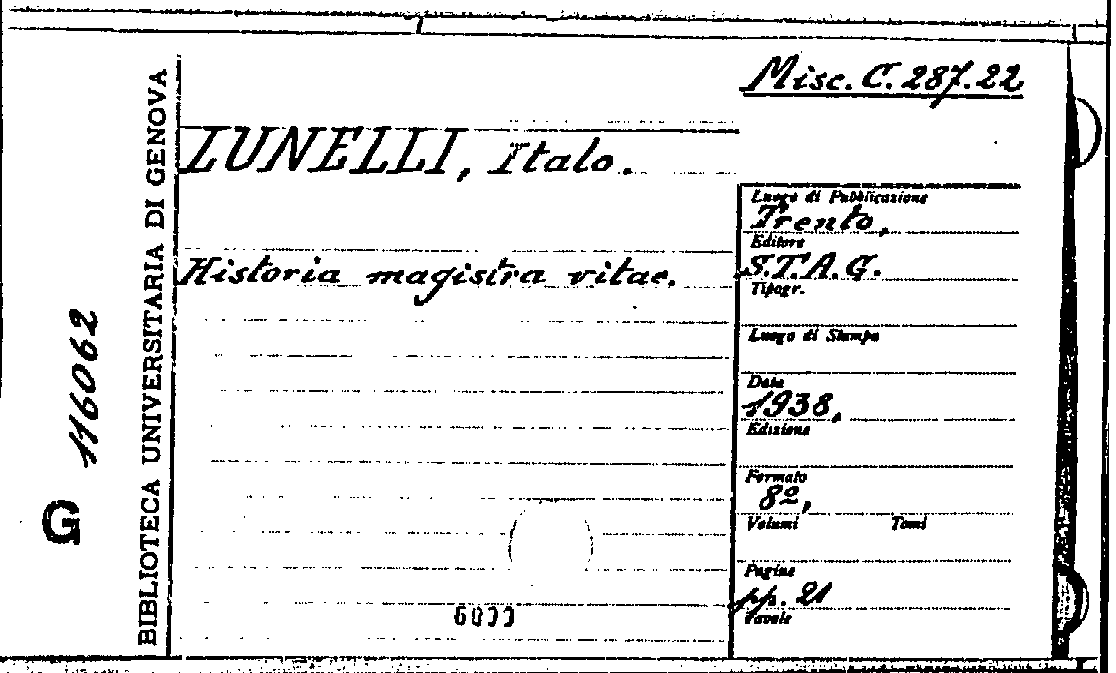 Misc. C. 287.22
LUNELLI, Italo.
Historia magistra vitae.
Luogo di Pubblicazione
Trento,
Editore
S.T.A.G.
Tipogr.
Luogo di Stampa
Data
1938,
Edizione
Formato
8º,
Volumi Tomi
Pagine
pp. 21
Tavole
BIBLIOTECA UNIVERSITARIA DI GENOVA
G 116062